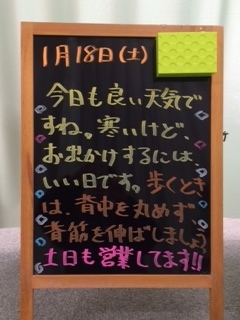 1月18日(土)
今日も良い天気で
すね。寒いけど、
お出かけするには、
いい日です。歩くとき
は、背中を丸めず
背筋を伸ばしましょう
土日も営業してます!!